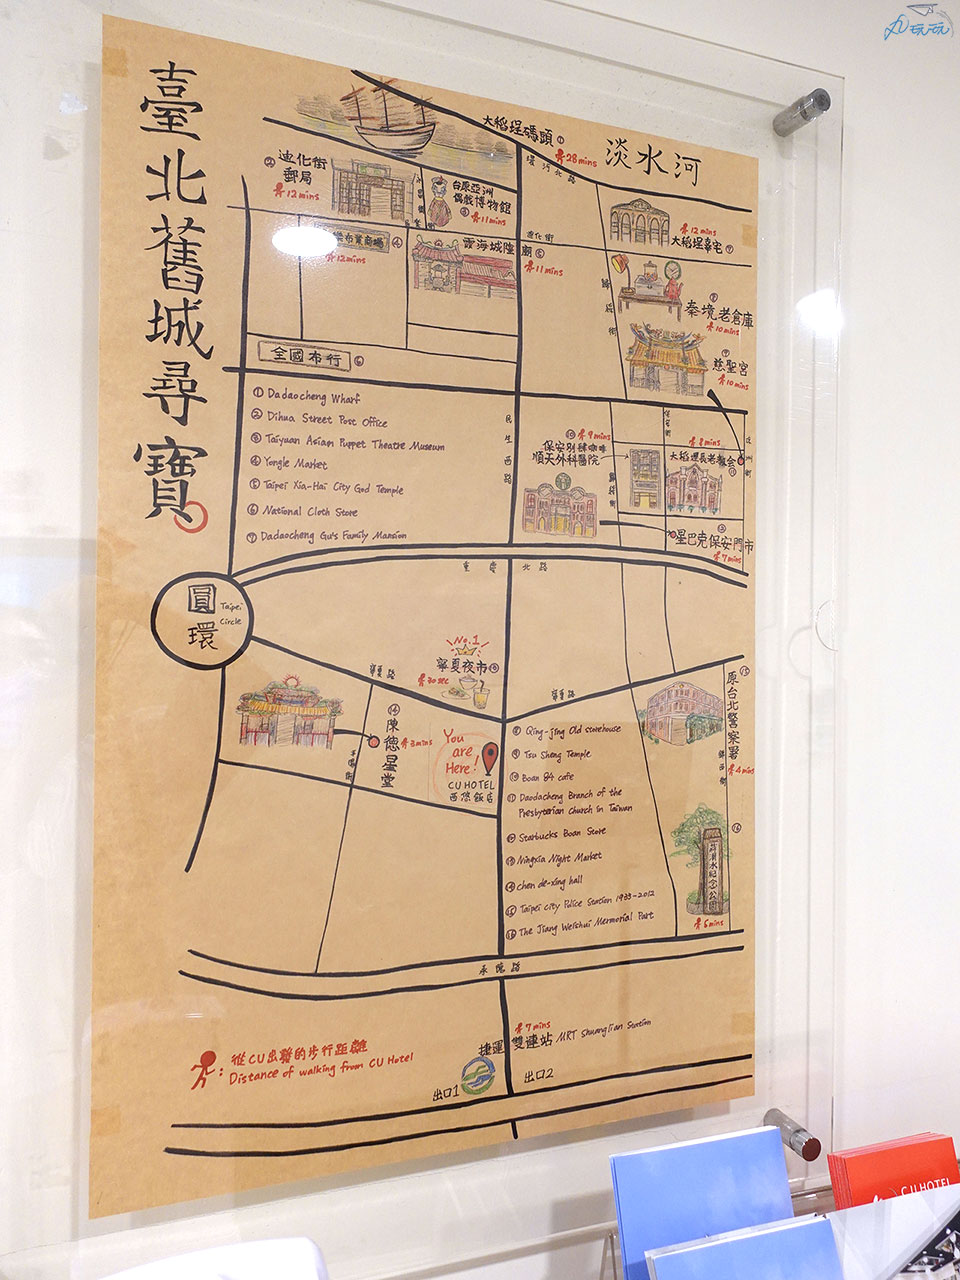 九玩玩
臺北舊城尋寶
大稻埕碼頭①
28 mins
淡水河
環河北路
② 迪化街
郵局
12 mins
台原亞洲
偶戲博物館
③ 11 mins
樂布業商場 ④
12 mins
霞海城隍廟⑤
11 mins
迪化街
12 mins
大稻埕辜宅⑦
歸綏街
⑧
秦境老倉庫
10 mins
⑨
慈聖宮
10 mins
全國布行 ⑥
① Dadaocheng Wharf
② Dihua Street Post Office
③ Taiyuan Asian Puppet Theatre Museum
④ Yongle Market
⑤ Taipei Xia-Hai City God Temple
⑥ National Cloth Store
⑦ Dadaocheng Gu's Family Mansion
民生西路
⑩ 9 mins
保安捌肆咖啡
順天外科醫院
保安街
8 mins
大稻埕長老教會
⑪
延平北路
⑫
星巴克保安門市
7 mins
重慶北路
圓環
Taipei
Circle
No.1
寧夏夜市⑬
30 sec
寧夏路
寧夏路
⑭
陳德星堂
3 mins
You
are
Here!
CU HOTEL
西悠飯店
⑧ Qing-jing Old storehouse
⑨ Tsu Sheng Temple
⑩ Boan 84 cafe
⑪ Daodacheng Branch of the
Presbyterian church in Taiwan
⑫ Starbucks Boan Store
⑬ Ningxia Night Market
⑭ chen de-xing hall
⑮ Taipei city Police Station 1933-2012
⑯ The Jiang Weishui Mermorial Part
⑮
原台北警察署
4 mins
錦西街
⑯
蔣渭水紀念公園
5 mins
承德路
7 mins
捷運 雙連站 MRT Shuanglian Station
出口1
出口2
: 從CU出發的步行距離
Distance of walking from CU Hotel
CU HOTEL